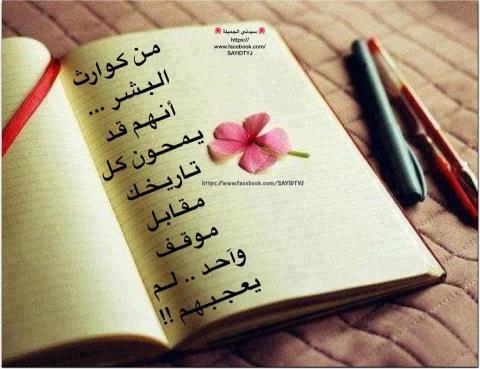 سيدتي الجميلة
https://
www.facebook.com/
SAYIDTYJ
من كوارث
البشر ...
أنهم قد
يمحون كل
تاريخك
مقابل
موقف
وآحد .. لم
يعجبهم !!
https://www.facebook.com/SAYIDTYJ